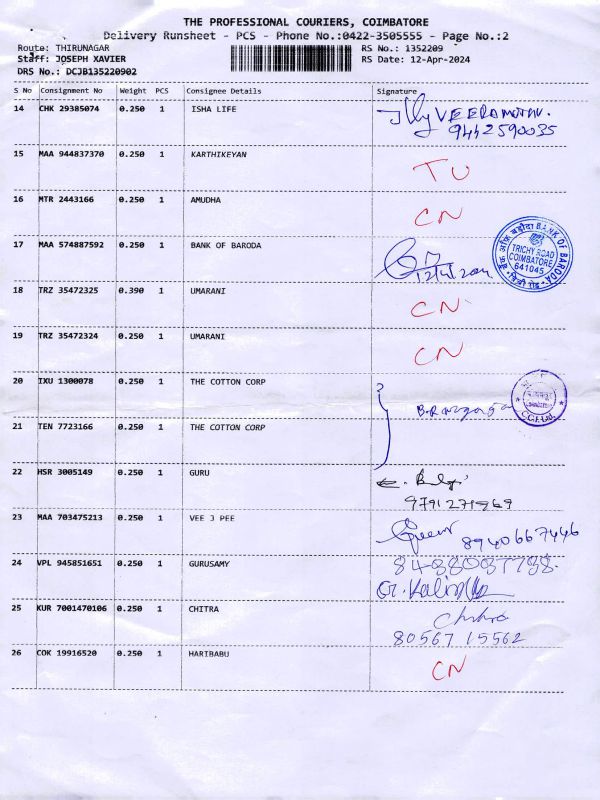 THE PROFESSIONAL COURIERS, COIMBATORE
Delivery Runsheet - PCS - Phone No.:0422-3505555 - Page No.:2
Route: THIRUNAGAR RS No.: 1352209
Staff: JOSEPH XAVIER RS Date: 12-Apr-2024
DRS No.: DCJB135220902
S No Consignment No Weight PCS Consignee Details Signature
14 CHK 29385074 0.250 1 ISHA LIFE
9442590035
15 MAA 944837370 0.250 1 KARTHIKEYAN TU
16 MTR 2443166 0.250 1 AMUDHA CN
17 MAA 574887592 0.250 1 BANK OF BARODA
BANK OF BARODA
TRICHY ROAD
COIMBATORE
641045
18 TRZ 35472325 0.390 1 UMARANI CN
19 TRZ 35472324 0.250 1 UMARANI CN
20 IXU 1300078 0.250 1 THE COTTON CORP
21 TEN 7723166 0.250 1 THE COTTON CORP
22 HSR 3005149 0.250 1 GURU
9791271969
23 MAA 703475213 0.250 1 VEE J PEE
8940667446
24 VPL 945851651 0.250 1 GURUSAMY
25 KUR 7001470106 0.250 1 CHITRA Chitra
80567 15562
26 COK 19916520 0.250 1 HARIBABU CN